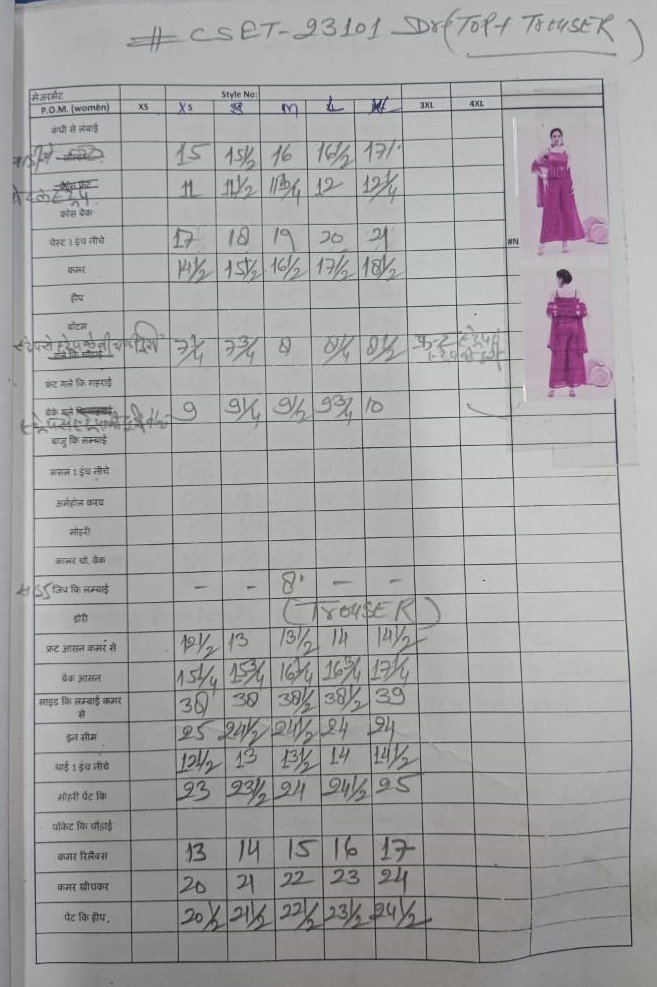 # CSET-23101 Drf (TOP + TROUSER)
मेजरमेंट Style No:
P.O.M. (women) XS XS S M L XL 3XL 4XL
कंधी से लंबाई
15 15 1/2 16 16 1/2 17
11 11 1/2 11 3/4 12 12 1/4
क्रोस बेक
चेस्ट 1 इंच नीचे 17 18 19 20 21
#N
कमर 14 1/2 15 1/2 16 1/2 17 1/2 18 1/2
हीप
बॉटम
7 1/4 7 3/4 8 8 1/4 8 1/2
फ्रंट गले कि गहराई
बेक गले 9 9 1/4 9 1/2 9 3/4 10
बाजु कि लम्बाई
मसल 1 इंच नीचे
अर्महोल करव
मोहरी
कालर चो. बेक
जिप कि लम्बाई - - 8" - -
डोरी (TROUSER)
फ्रंट आसन कमर से 12 1/2 13 13 1/2 14 14 1/2
बेक आसन 15 1/4 15 3/4 16 1/4 16 3/4 17 1/4
साइड कि लम्बाई कमर से 38 38 38 1/2 38 1/2 39
इन सीम 25 24 1/2 24 1/2 24 24
थाई 1 इंच नीचे 12 1/2 13 13 1/2 14 14 1/2
मोहरी पेंट कि 23 23 1/2 24 24 1/2 25
पोकेट कि चौड़ाई
कमर रिलैक्स 13 14 15 16 17
कमर खीचकर 20 21 22 23 24
पेंट कि हीप. 20 1/2 21 1/2 22 1/2 23 1/2 24 1/2